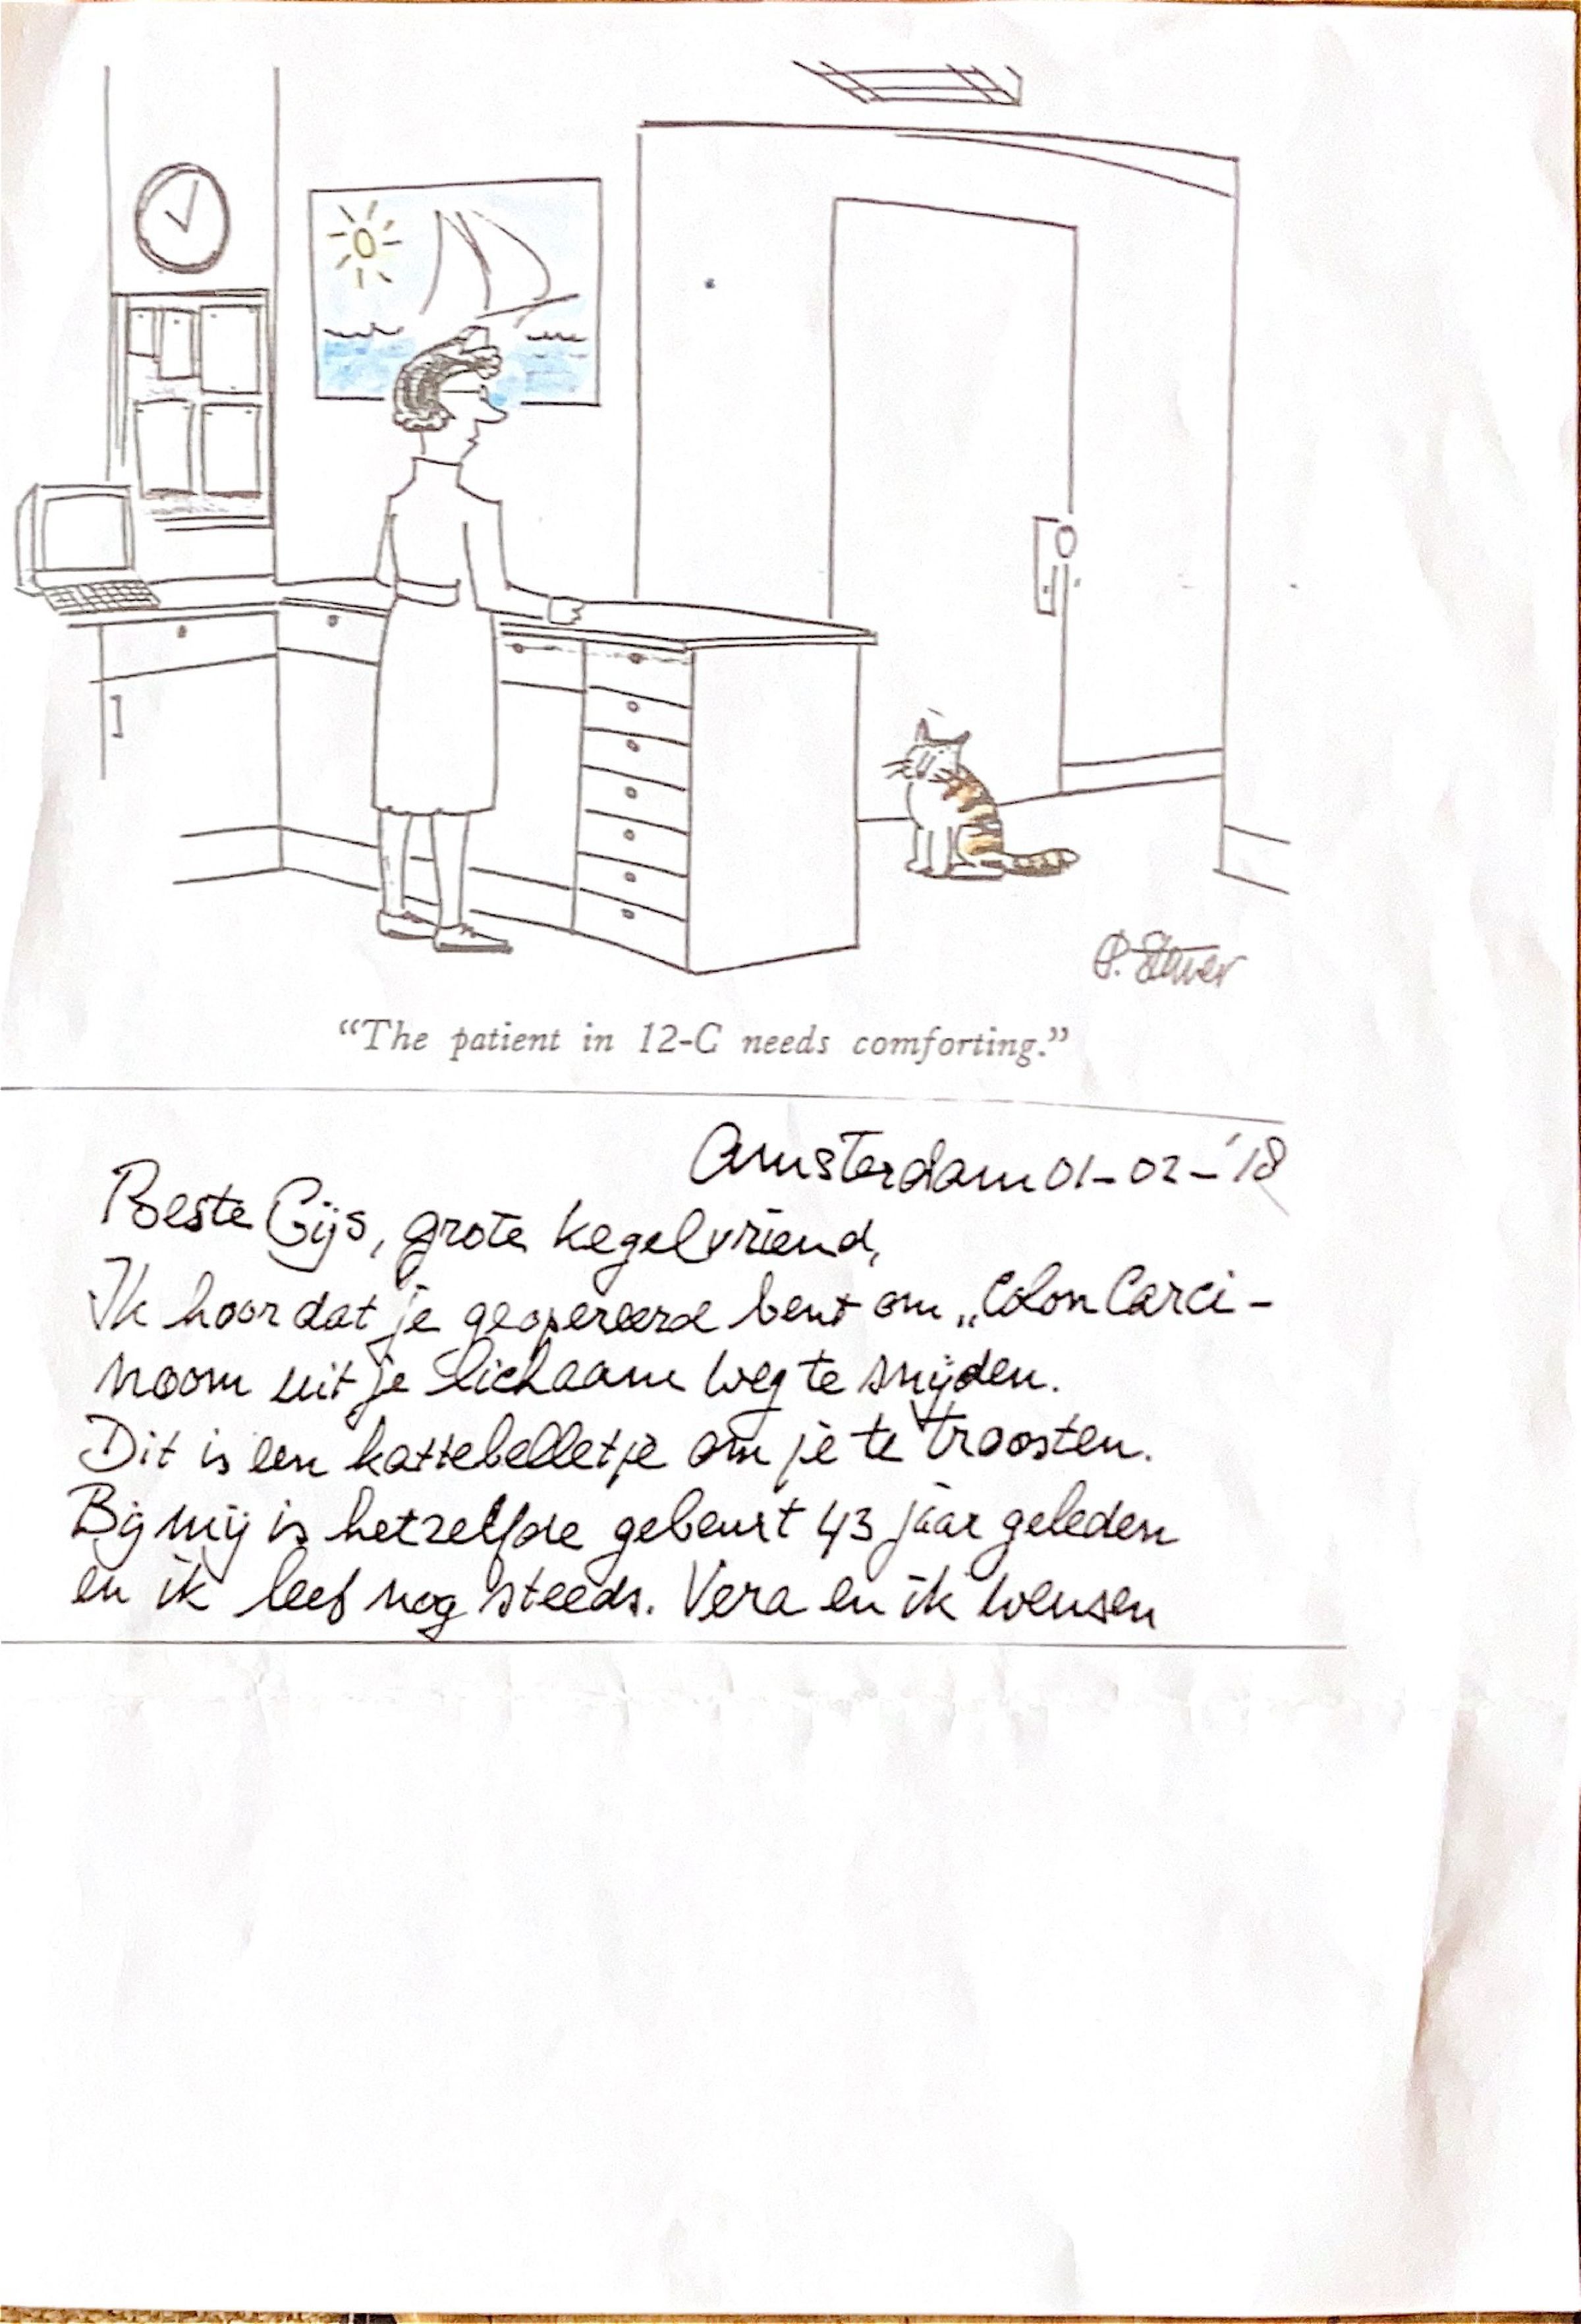 P. Steiner
“The patient in 12-C needs comforting.”
Amsterdam 01-02-'18
Beste Gijs, grote kegelvriend,
Ik hoor dat je geopereerd bent om „Colon Carci-
noom uit je lichaam weg te snijden.
Dit is een kattebelletje om je te troosten.
Bij mij is hetzelfde gebeurt 43 jaar geleden
en ik leef nog steeds. Vera en ik wensen